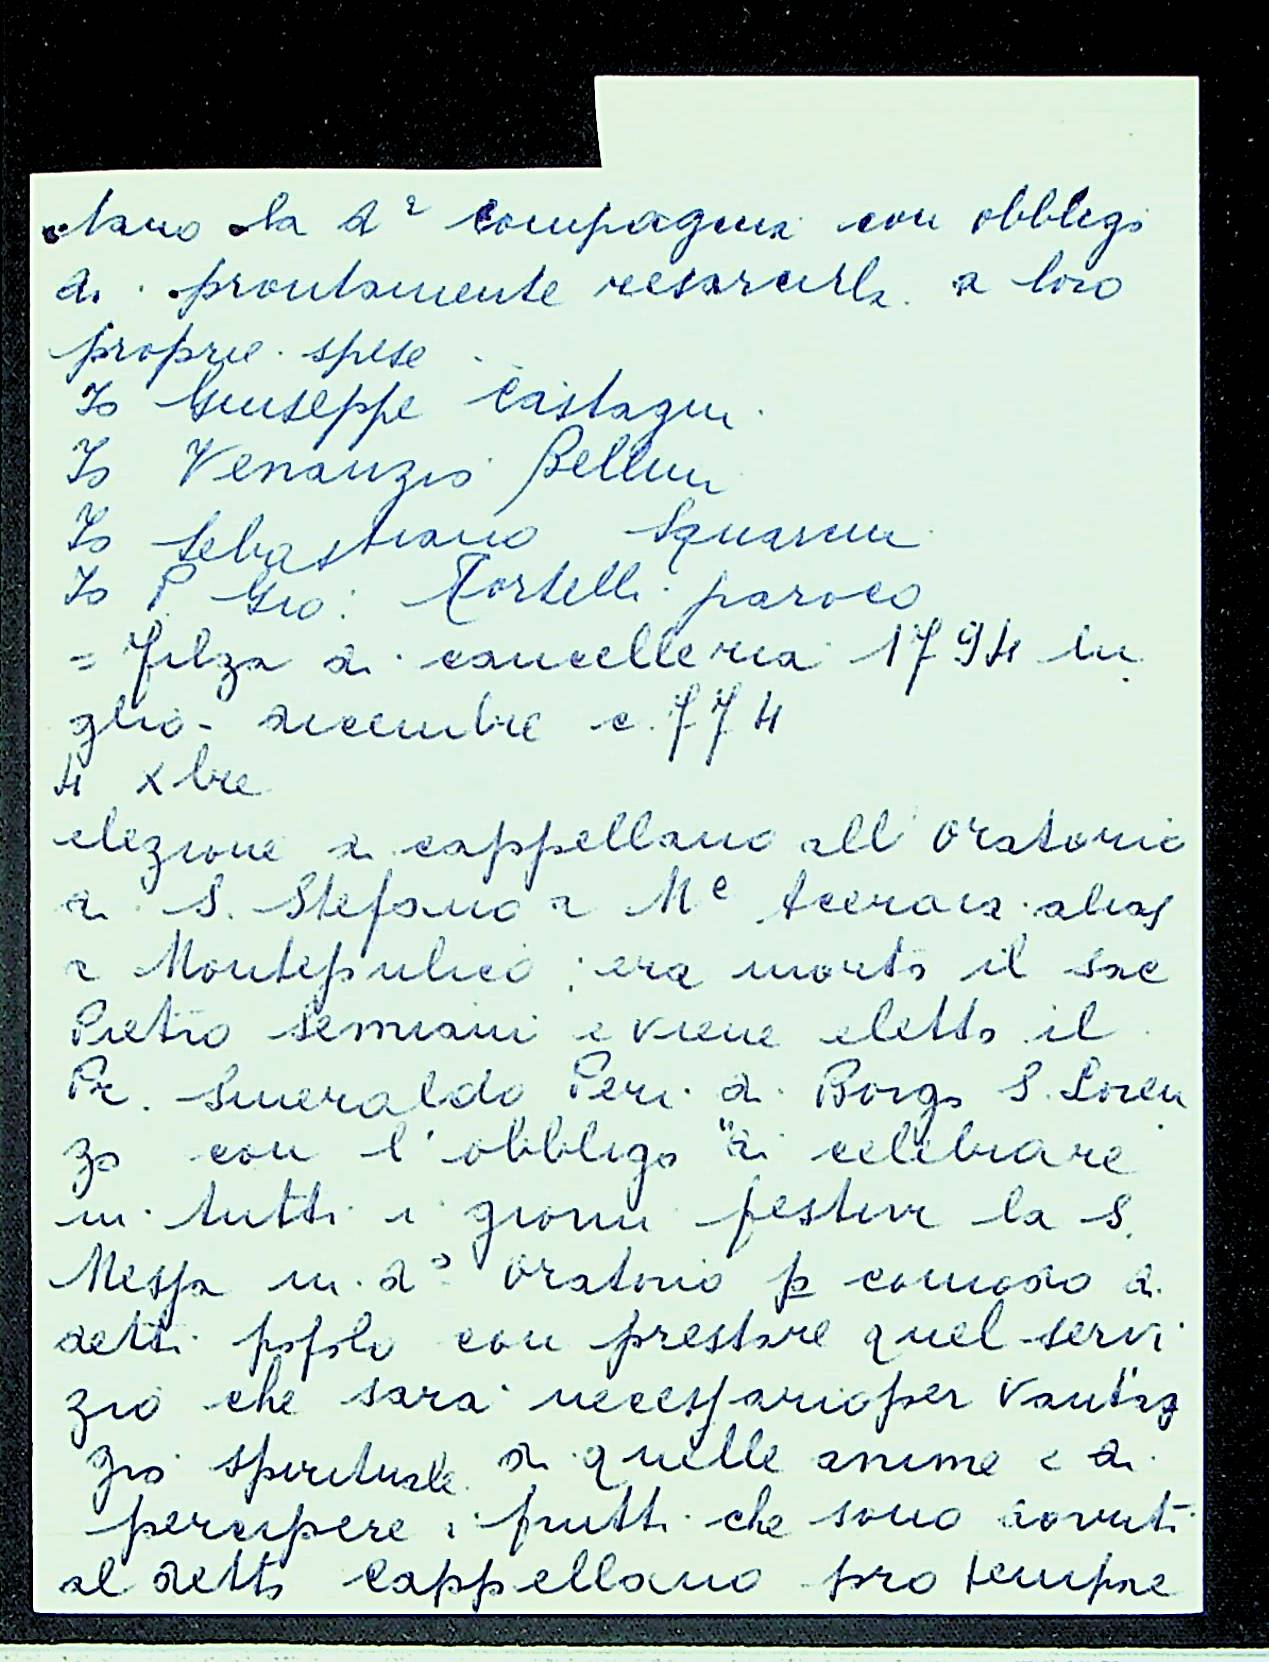 tano la dª compagnia con obbligo
di prontamente resarcirla a loro
proprie spese.
Io Giuseppe Castagni
Io Venanzio Bellini
Io Sebastiano Squarcini
Io P. Gio: Tortelli paroco
= Filza di cancelleria 1794 lu
glio - dicembre c. 774
4 xbre
elezione a cappellano all'oratorio
di S. Stefano a Me Aceraia alias
a Montepulico; era morto il sac
Pietro e viene eletto il
Pr. Smeraldo Peri di Borgo S. Loren
zo con l'obbligo "di celebrare
in tutti i giorni festivi la S.
Messa in dº oratorio p comodo di
detti popolo con prestare quel servi
zio che sarà necessario per vantag
gio spirituale di quelle anime e di
percipere i frutti che sono dovuti
al detto Cappellano pro tempore